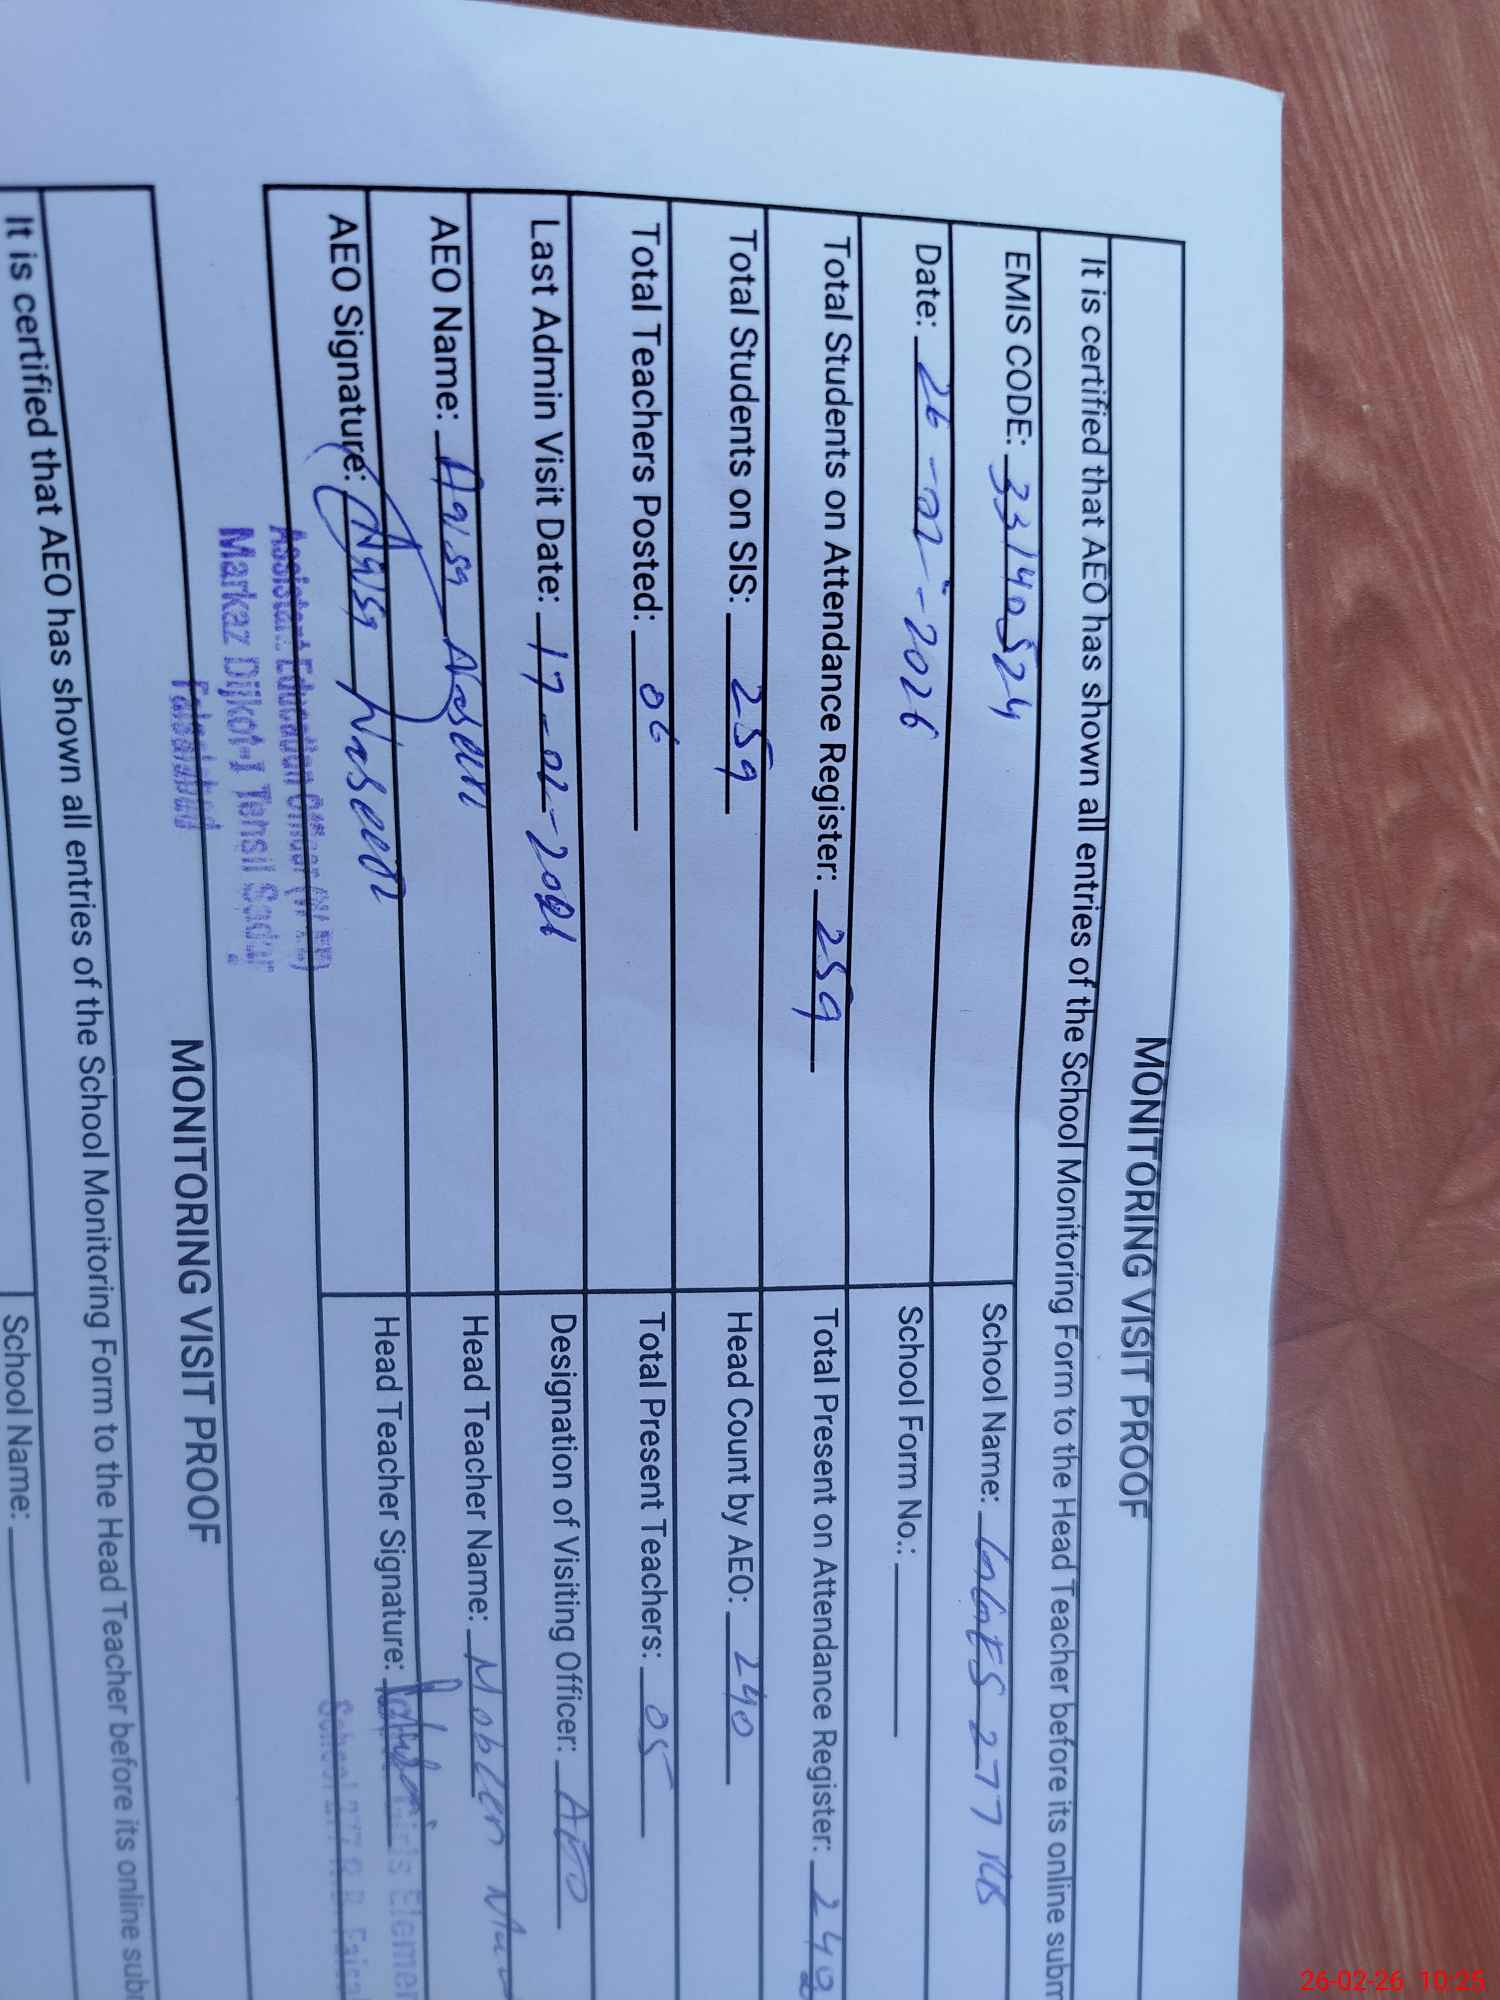 MONITORING VISIT PROOF
It is certified that AEO has shown all entries of the School Monitoring Form to the Head Teacher before its online subm
EMIS CODE: 33140524 School Name: GGES 277 RB
Date: 26-02-2026 School Form No.:
Total Students on Attendance Register: 259 Total Present on Attendance Register: 240
Total Students on SIS: 259 Head Count by AEO: 240
Total Teachers Posted: 06 Total Present Teachers: 05
Last Admin Visit Date: 17-02- Designation of Visiting Officer: AEO
AEO Name: Aqisa Naseem Head Teacher Name: Mobeen
AEO Signature: Aqisa Naseem Head Teacher Signature:
Assistant Education Officer
Markaz Dijkot-1 Tehsil Saddar
Faisalabad
Girls Elemen
School 277 R.B. Faisal
MONITORING VISIT PROOF
It is certified that AEO has shown all entries of the School Monitoring Form to the Head Teacher before its online subm
School Name:
26-02-26 10:25